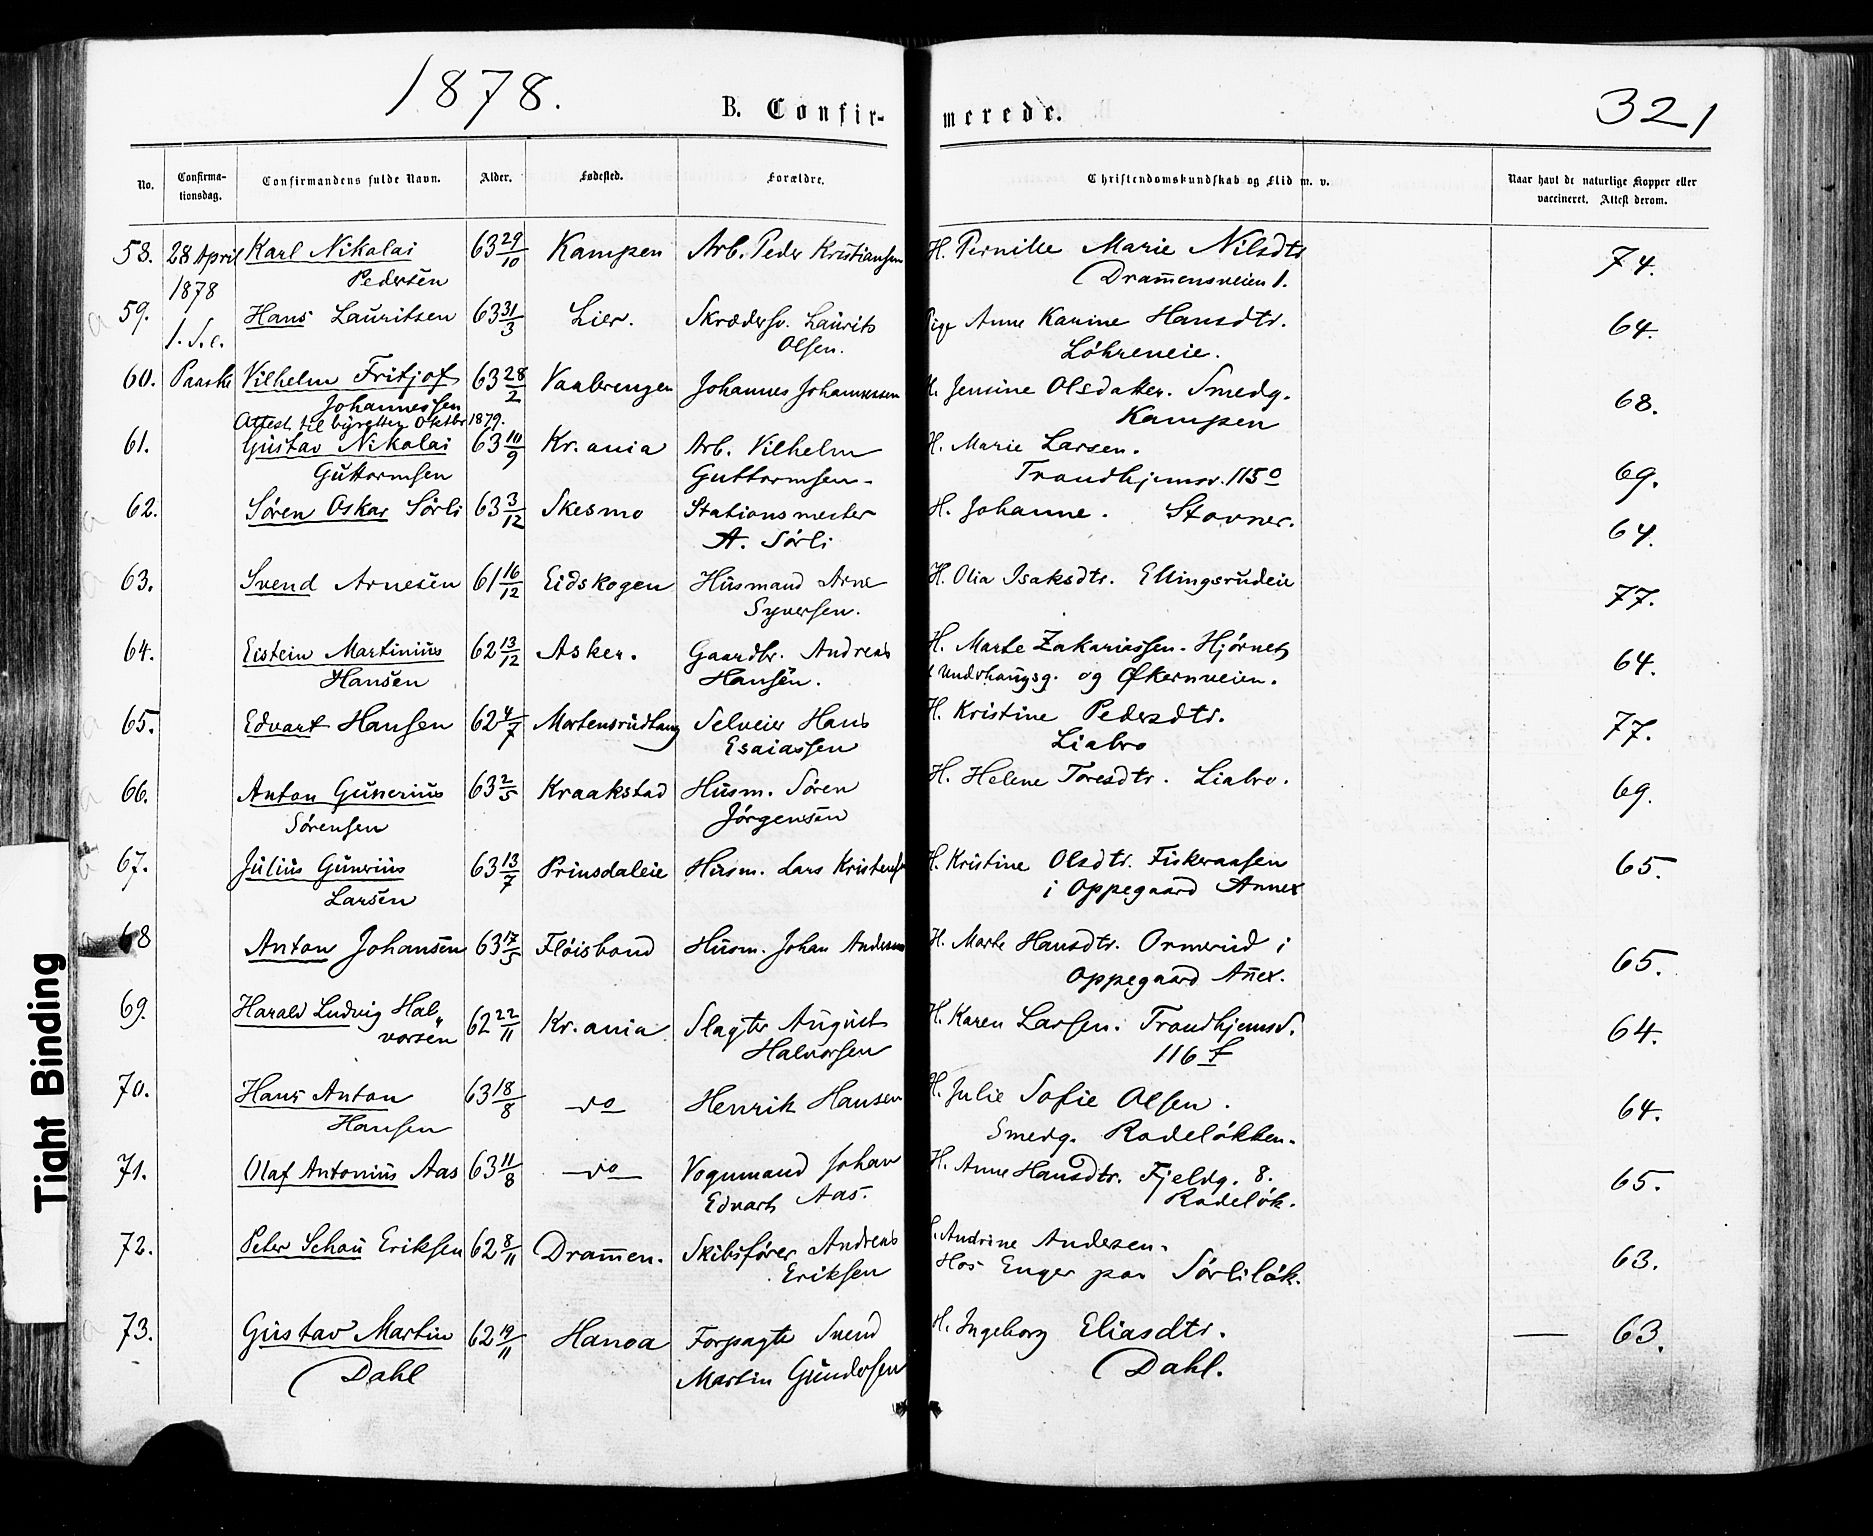 1878.
B. Confir-
merede.
321
No.
Confirma-
tionsdag.
Confirmandens fulde Navn.
Alder.
Fødested.
Forældre.
Christendomskundskab og Flid m. v.
Naar havt de naturlige Kopper eller
vaccineret. Attest derom.
58. 28 April Karl Nikolai 63 29/10 Kampen Arb. Peder Kristiansen H. Pernille Marie Nilsdtr 74.
1878 Pedersen Drammensveien 1.
59. Hans Lauritsen 63 31/3 Lier. Skrædersv. Laurits Pige Anne Karine Hansdtr. 64.
1. S. e. Olsen. Løhreneie.
60. Paaske Vilhelm Fritjof 63 28/2 Vaalerengen Johannes Johannessen H. Jensine Olsdatter. Smedg. 68.
Johannessen Kampen
Attest til byretten Oktbr 1879.
61. Gustav Nikolai 63 10/9 Kr.ania Arb. Vilhelm H. Marie Larsen. 69.
Guttormsen Guttormsen Trondhjemsv. 115
62. Søren Oskar Sørli 63 3/12 Skesmo Stationsmester H. Johanne. Stovner. 64.
A. Sørli
63. Svend Arnesen 61 16/12 Eidskogen Husmand Arne H. Olia Isaksdtr. Ellingsrudeie 77.
Syversen.
64. Eistein Martinius 62 13/12 Asker. Gaardbr. Andreas H. Marte Zakariassen. Hjørnet 64.
Hansen Hansen. og Økernveien.
65. Edvart Hansen 62 4/7 Mortensrudhaug Selveier Hans H. Kristine Pedersdtr. 77.
Esaiassen Liabro
66. Anton Gunerius 63 2/5 Kraakstad Husm. Søren H. Helene Toresdtr. Liabro. 69.
Sørensen Jørgensen
67. Julius Gunerius 63 13/7 Prinsdaleie Husm. Lars Kristensen H. Kristine Olsdtr. Fiskeraasen 65.
Larsen i Oppegaard Annex
68 Anton Johansen 63 17/5 Fløisbond Husm. Johan Andersen H. Marte Hansdtr. Ormerud i 65.
Oppegaard Anex.
69. Harald Ludvig Hal- 62 22/11 Kr.ania Slagter August H. Karen Larsen. Trondhjemsv. 64.
vorsen Halvorsen 116 f
70. Hans Anton 63 18/8 do Henrik Hansen H. Julie Sofie Olsen. 64.
Hansen Smedg. Rodeløkken.
71. Olaf Antonius Aas 63 11/8 do Vognmand Johan H. Anne Hansdtr. Fjeldg. 8. 65.
Edvart Aas. Rodeløk.
72. Peter Schou Eriksen 62 8/11 Drammen. Skibsfører Andreas H. Andrine Andersen. 63.
Eriksen Hos Enger paa Sørliløk.
73. Gustav Martin 62 19/11 Hanoa Forpagter Svend H. Ingeborg Eliasdtr. — 63.
Dahl Martin Gundersen Dahl.
Tight Binding